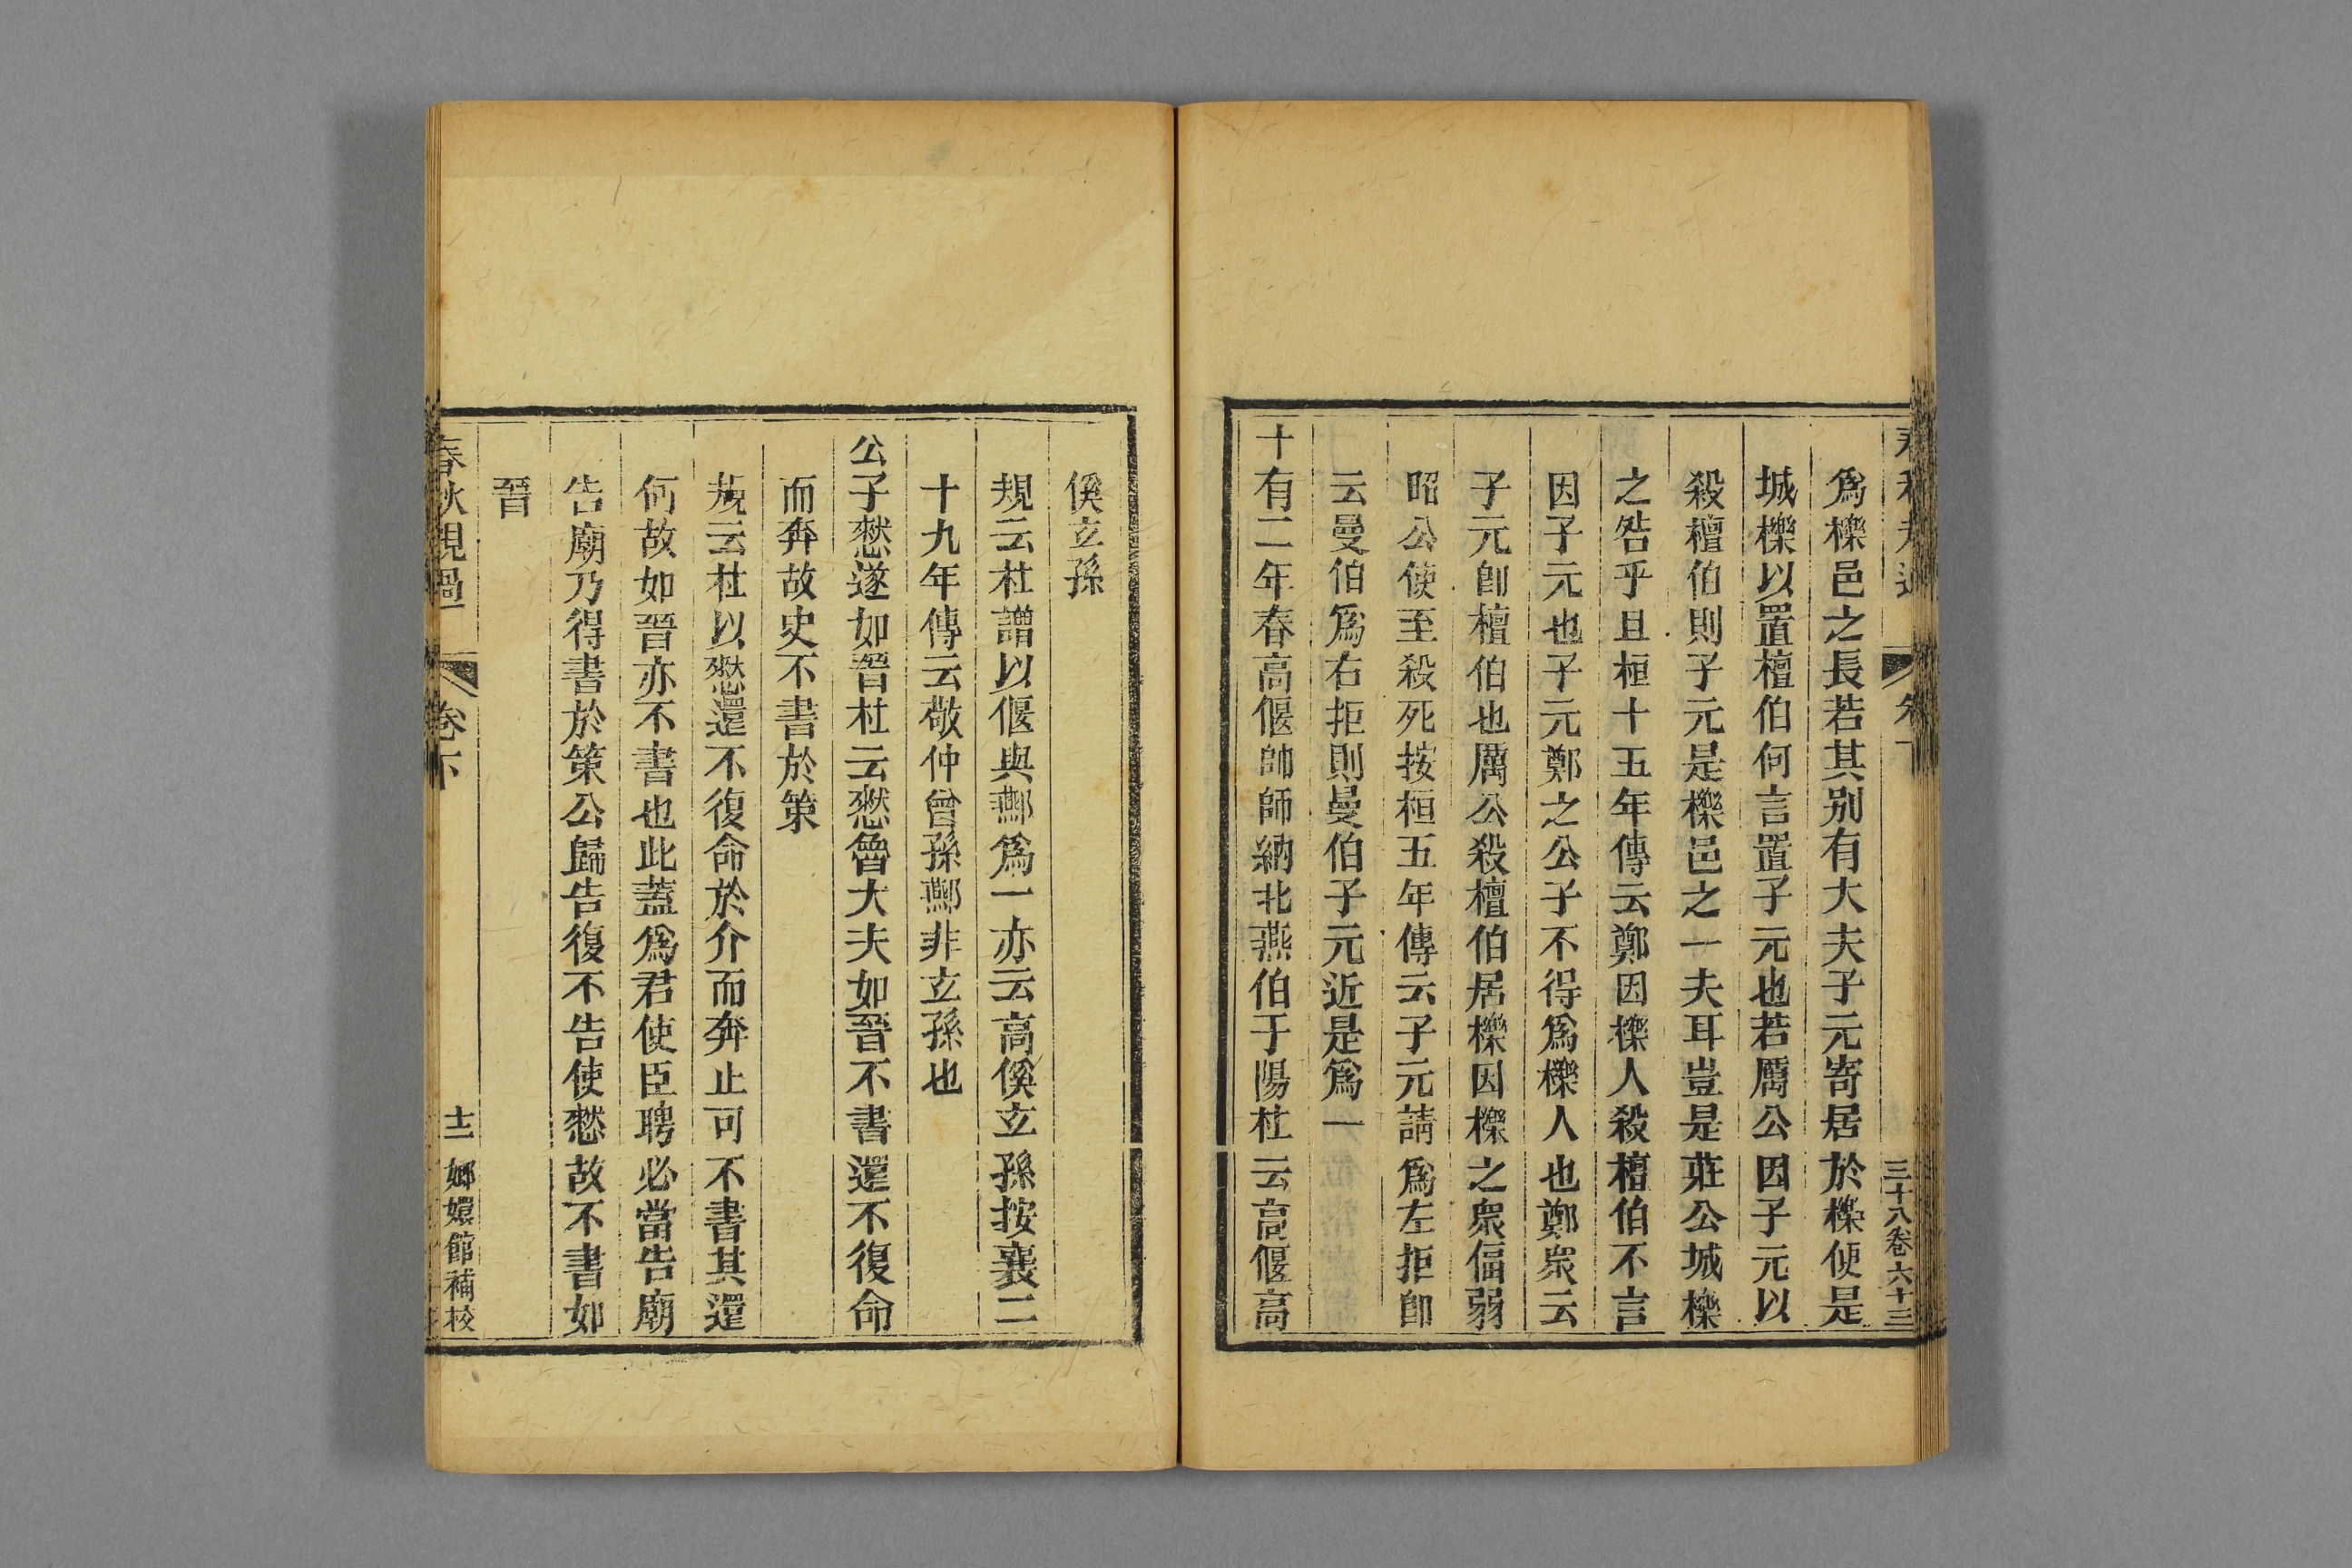 三十八卷六十三
爲櫟邑之長若其別有大夫子元寄居於櫟便是
城櫟以置檀伯何言置子元也若厲公因子元以
殺檀伯則子元是櫟邑之一夫耳豈是莊公城櫟
之咎乎且桓十五年傳云鄭因櫟人殺檀伯不言
因子元也子元鄭之公子不得爲櫟人也鄭衆云
子元卽檀伯也厲公殺檀伯居櫟因櫟之衆偪弱
昭公使至殺死按桓五年傳云子元請爲左拒卽
云曼伯爲右拒則曼伯子元近是爲一
十有二年春高偃帥師納北燕伯于陽杜云高偃高
傒玄孫
規云杜譜以偃與酀爲一亦云高傒玄孫按襄二
十九年傳云敬仲曾孫酀非玄孫也
公子憖遂如晉杜云憖魯大夫如晉不書還不復命
而奔故史不書於策
規云杜以憖還不復命於介而奔止可不書其還
何故如晉亦不書也此蓋爲君使臣聘必當告廟
告廟乃得書於策公歸告復不告使憖故不書如
晉
春秋規過 卷下 十二 嫏嬛館補校